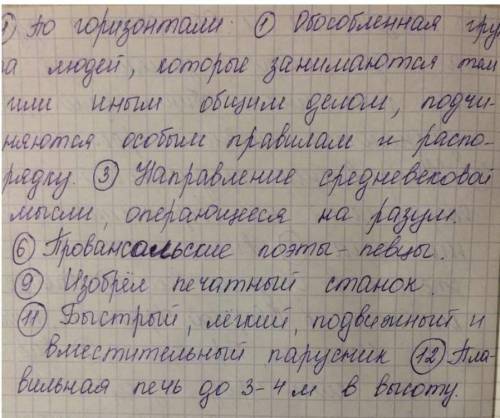 ① По горизонтали. ① Обособленная груп
па людей, которые занимаются тем
или иным общим делом, подчи-
няются особым правилам и распо-
рядку. ③ Направление средневековой
мысли, операющееся на разум.
⑥ Провансальские поэты-певцы.
⑨ Изобрёл печатный станок.
⑪ Быстрый, лёгкий, подвижный и
вместительный парусник ⑫ Пла-
вильная печь до 3-4 м в высоту.